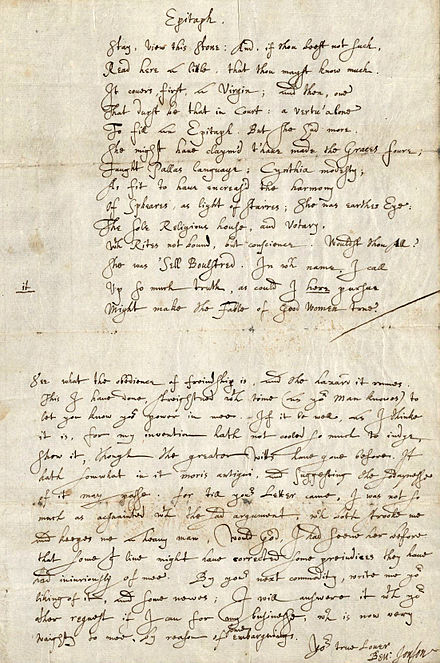 Epitaph.
Stay, view this Stone: And, if thou beest not such,
Read here a little, that thou mayst know much.
It covers, first, a Virgin; and then, one
That durst be that in Court: a vertu' alone
To fill an Epitaph. But she had more.
She might have claym'd t'have made the Graces foure;
Taught Pallas language; Cynthia modesty;
As fit to have encreas'd the harmony
Of Spheares, as light of starres; She was earthes Eye:
The sole Religious house, and Votary,
Wth Rites not bound, but conscience. Wouldst thou All?
She was 'Sell Boulstred. In wch name, I call
it Up so much truth, as could I here pursue
Might make the Fable of Good Women true.
See what the obedience of freindship is, and the hazard it runnes.
This I have done, streightned wth time (as yor Man knowes) to
let you know yor power in mee. If it be well, as I thinke
it is, for my invention hath not cooled so much to judge,
show it, though the greater Witts have gone before. It
hath somwhat in it moris antiqui, and suggesting the
of it may passe. For till your Letter came, I was not so
much as acquainted wth the sad argument, wch both strooke me
and keepes me a heavy man, Would God, I had seene her before
that some yt live might have corrected some prejudices they have
had injuriously of mee. By yor next commodity, write me yor
liking of it, and some newes; I will answere it wth yor
other request if I can for my businesse, wch is now very
waighty to mee, by reason of some
Yor true Lover
Ben: Jonson